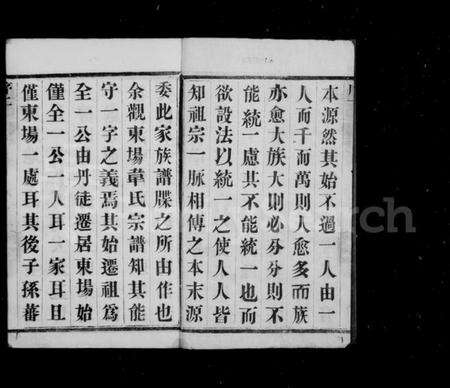 本源然其始不過一人由一
人而千而萬則人愈多而族
亦愈大族大則必分分則不
能統一慮其不能統一也而
欲設法以統一之使人人皆
知祖宗一脈相傳之本末源
委此家族譜牒之所由作也
余觀東場韋氏宗譜知其能
守一字之義焉其始遷祖為
全一公由丹徒遷居東場始
僅全一公一人耳一家耳且
僅東場一處耳其後子孫蕃